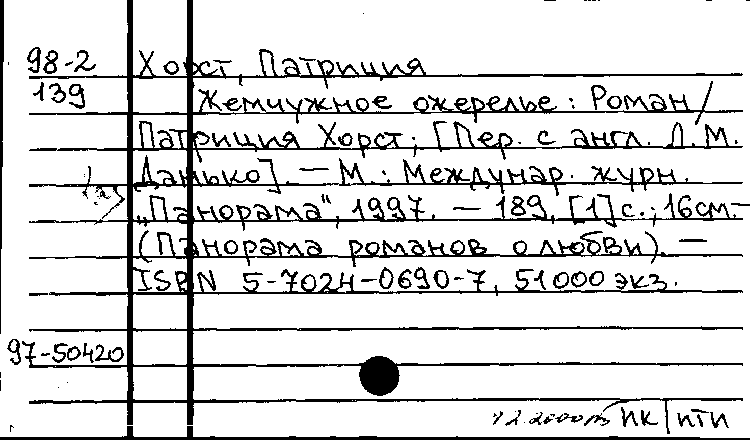 98-2 Хорст, Патриция
139 Жемчужное ожерелье: Роман/
Патриция Хорст; [Пер. с англ. Л. М.
Данько]. — М.: Междунар. журн.
„Панорама“, 1997. — 189, [1] с.; 16 см. —
(Панорама романов о любви). —
ISBN 5-7024-0690-7, 51000 экз.
97-50420
ПК|ПТИ